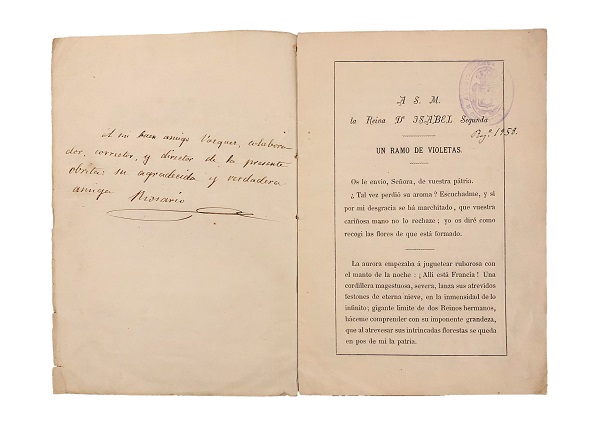 A mi buen amigo Vazquez, colabora-
dor, corrector, y director de la presente
obrita: su agradecida y verdadera
amiga Rosario
Á S. M.
la Reina Dª ISABEL Segunda
1953.
UN RAMO DE VIOLETAS.
Os le envio, Señora, de vuestra pátria.
¿ Tal vez perdió su aroma ? Escuchadme, y si
por mi desgracia se há marchitado, que vuestra
cariñosa mano no lo rechaze ; yo os diré como
recogi las flores de que está formado.
La aurora empezaba á juguetear ruborosa con
el manto de la noche : ¡ Alli está Francia ! Una
cordillera magestuosa, severa, lanza sus atrevidos
festones de eterna nieve, en la inmensidad de lo
infinito ; gigante limite de dos Reinos hermanos,
háceme comprender con su imponente grandeza,
que al atravesar sus intrincadas florestas se queda
en pos de mi la patria.